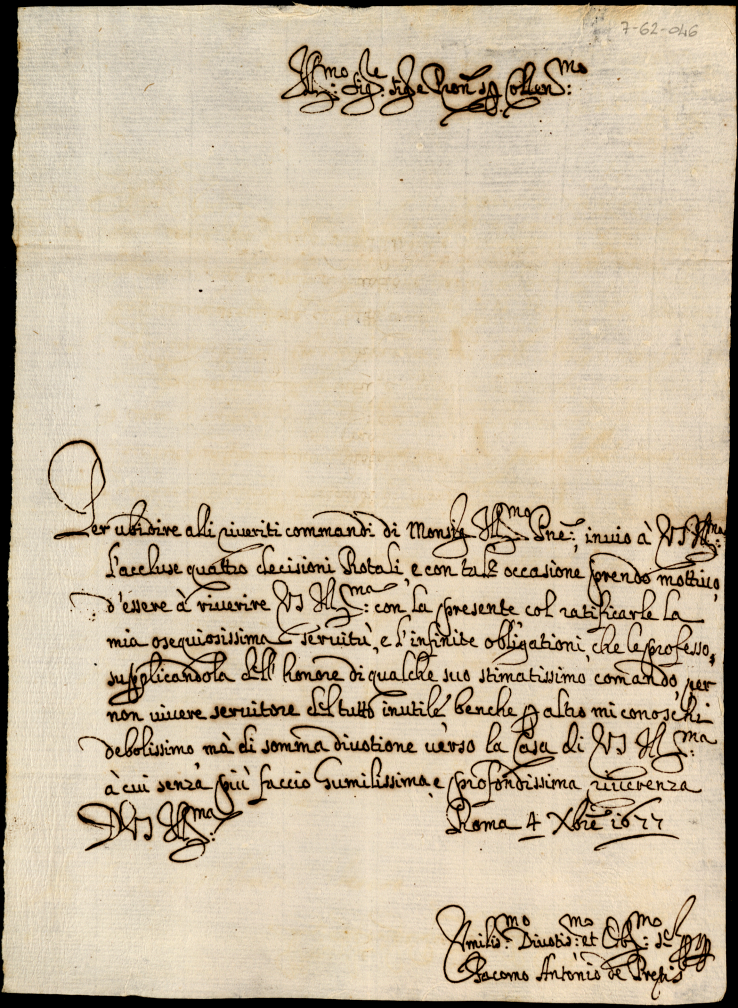 7-62-046
Ill:mo Sig:re Sig:e Pron Colen:mo
Per ubidire alli riveriti commandi di Monsig Ill:mo Pne: invio à VS Ill:ma
l'accluse quattro decisioni Rotali, e con tale occasione prendo mottivo
d'essere à riverire VS Ill:ma con la presente col ratificarle la
mia osequiosissima servitù, e l'infinite obligationi che le professo,
supplicandola dell' honore di qualche suo stimatissimo comando per
non vivere servitore del tutto inutile benche p altro mi conoschi
debolissimo mà di somma divotione verso la Casa di VS Ill:ma
à cui senza più faccio humilissima, e profondissima riverenza
D VS Ill:ma Roma 4 Xbre 1677
Umilis:mo Divotis:mo et Ob:mo
Giacomo Antonio de